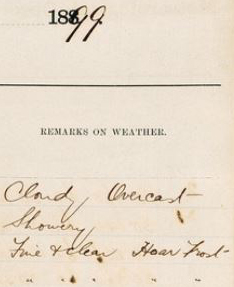 1899
REMARKS ON WEATHER.
Cloudy Overcast
Showery
Fine & clear Hoar Frost
" " " "